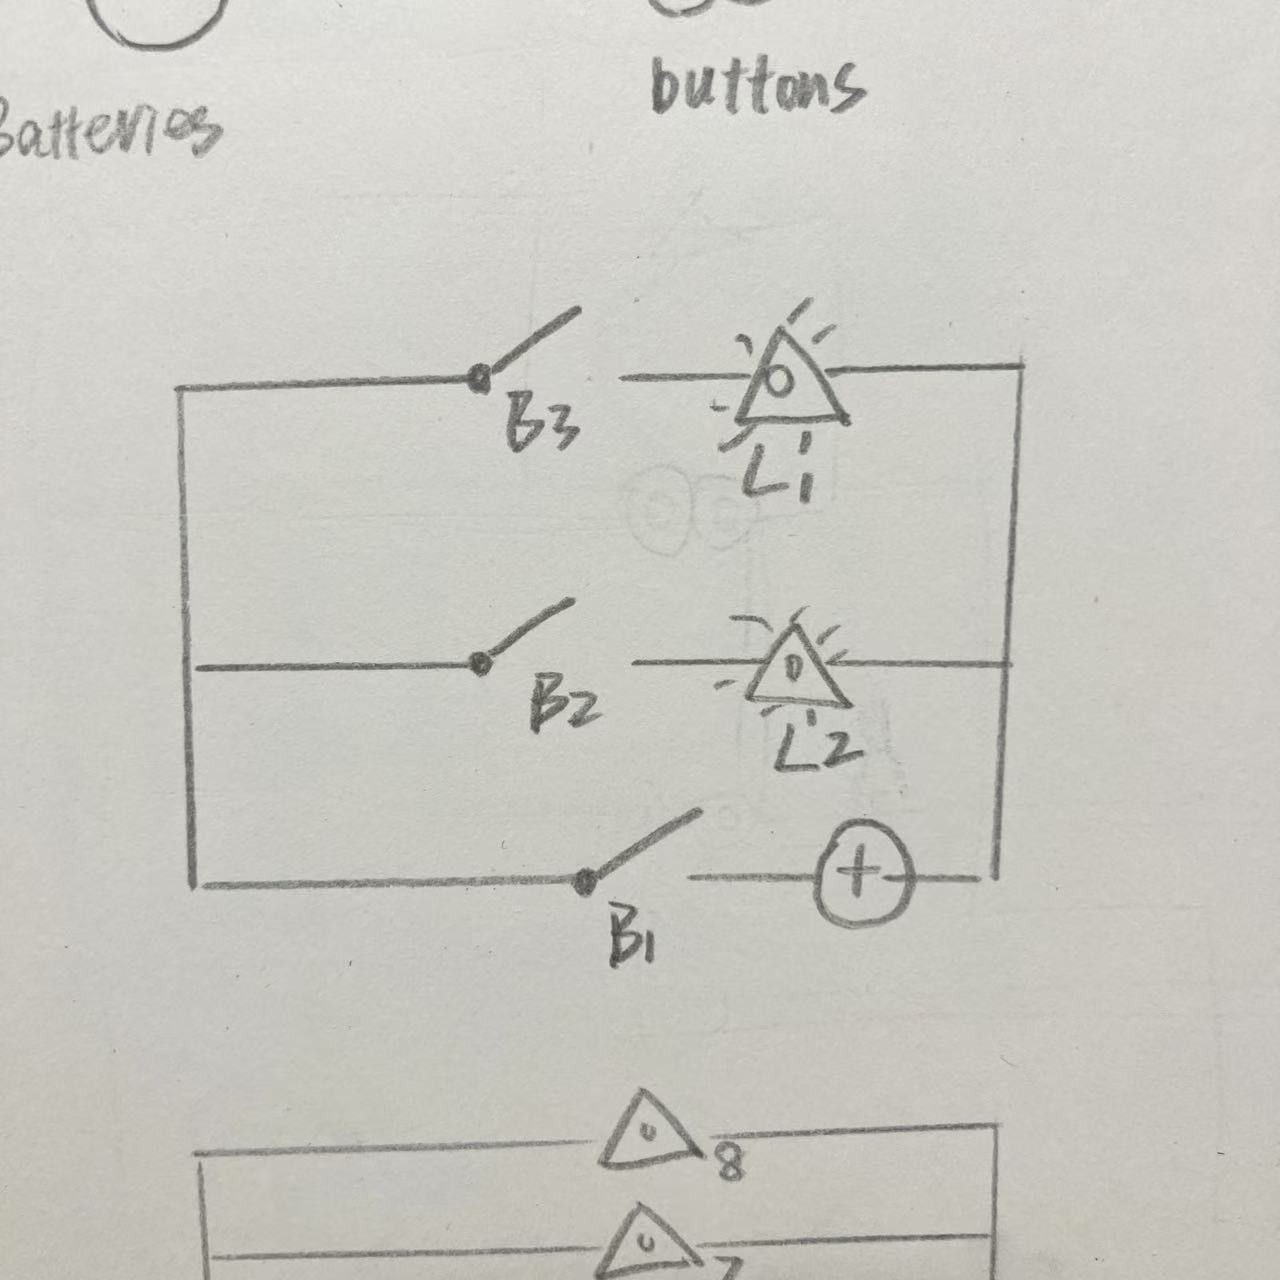 buttons
Batteries
B3
L1
B2
L2
+
B1
8
7